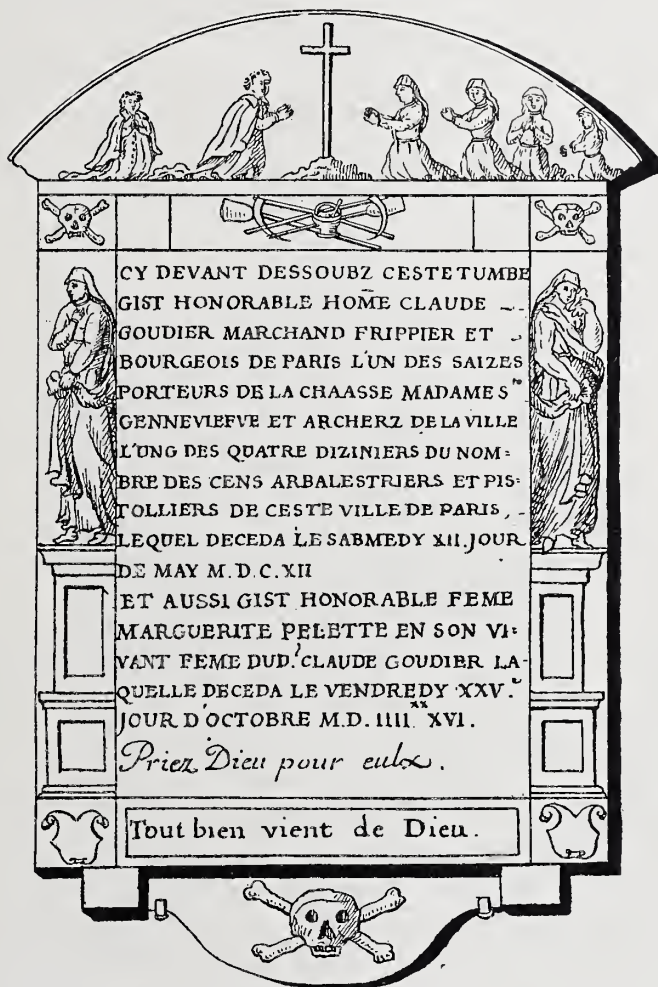 CY DEVANT DESSOUBZ CESTE TUMBE
GIST HONORABLE HOM̄E CLAUDE
GOUDIER MARCHAND FRIPPIER ET
BOURGEOIS DE PARIS L'UN DES SAIZES
PORTEURS DE LA CHAASSE MADAME S^te
GENNEVIEFVE ET ARCHERZ DE LA VILLE
L'UNG DES QUATRE DIZINIERS DU NOM=
BRE DES CENS ARBALESTRIERS ET PIS=
TOLLIERS DE CESTE VILLE DE PARIS,
LEQUEL DECEDA LE SABMEDY XII. JOUR
DE MAY M.D.C.XII
ET AUSSI GIST HONORABLE FEME
MARGUERITE PELETTE EN SON VI=
VANT FEME DUD.^t CLAUDE GOUDIER LA-
QUELLE DECEDA LE VENDREDY XXV.^e
JOUR D'OCTOBRE M.D.IIII^XX XVI.
Priez Dieu pour eulx.
Tout bien vient de Dieu.